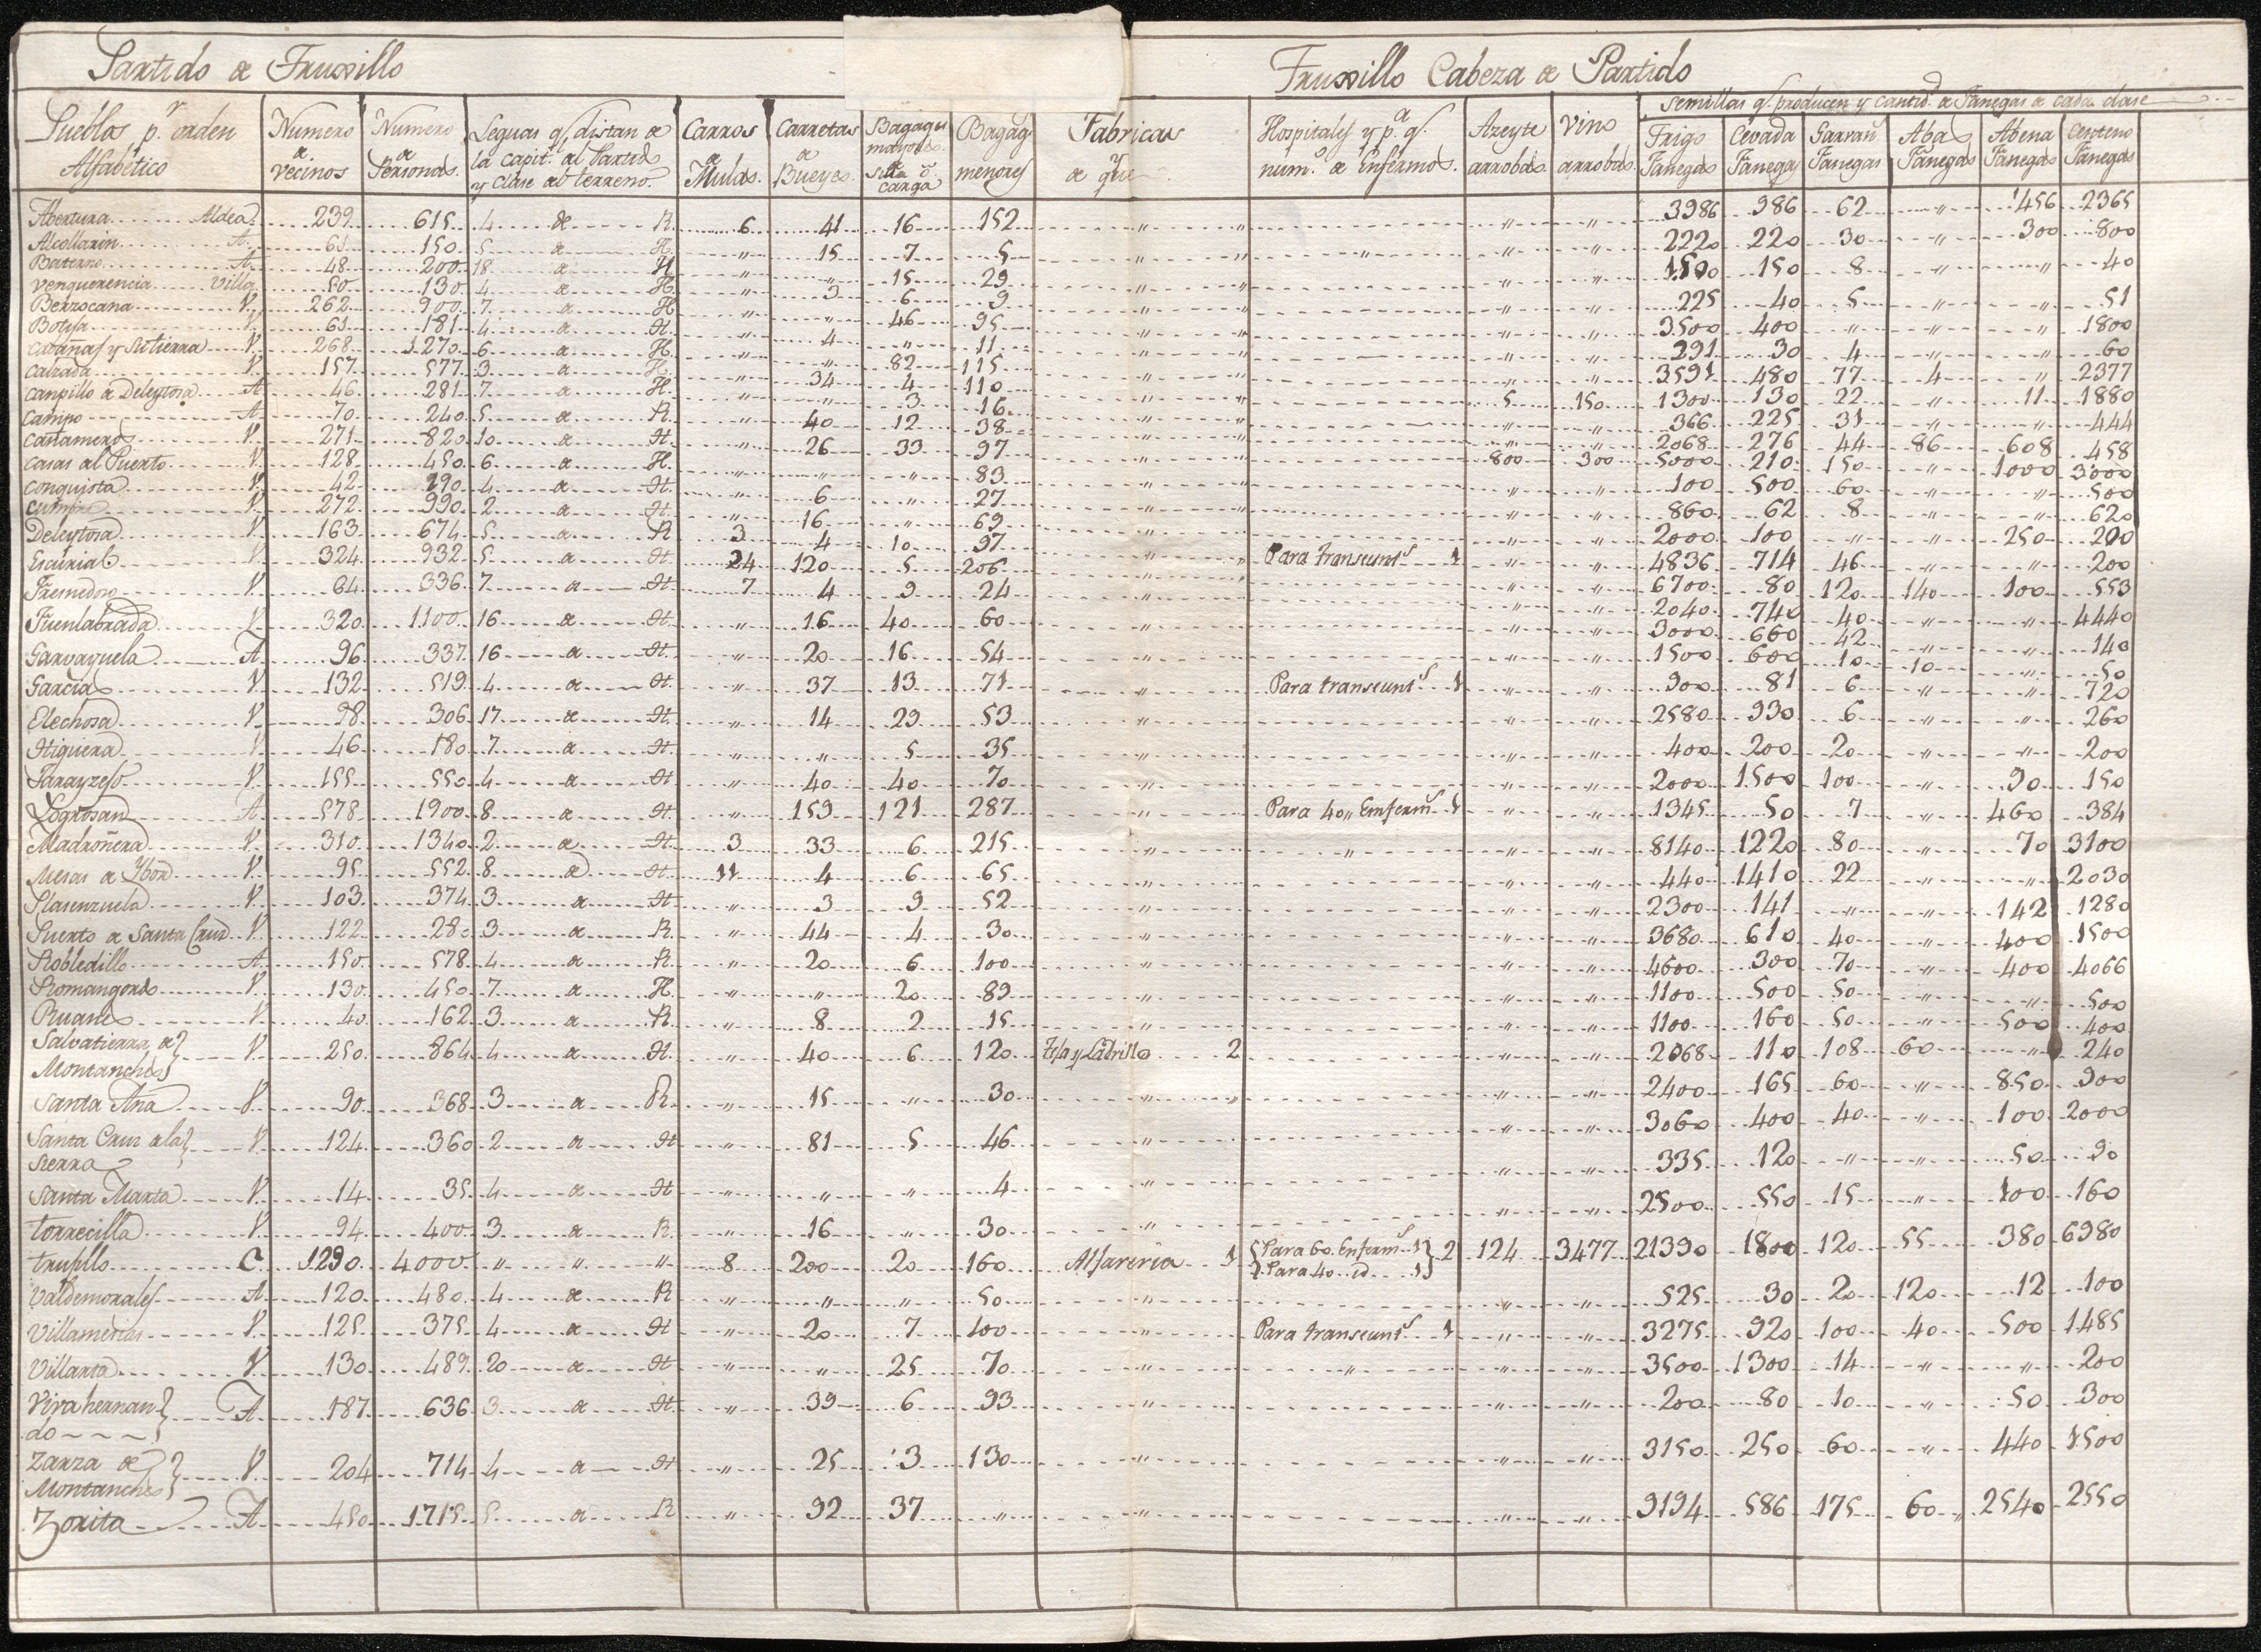 Partido de Truxillo
Truxillo Cabeza de Partido
Pueblos p.r orden Alfabetico | Numero de Vecinos | Numero de Personas. | Leguas q.e distan de la capit.l del Partido y Clase del terreno. | Carros de Mulas. | Carretas de Bueyes. | Bagages mayores de silla ó carga | Bagag.s menores | Fabricas y de que | Hospitales y p.a q.e num.o de Enfermos. | Azeyte arrobas. | Vino arrobas. | Semillas q.e producen y cantid.d de Fanegas de cada clase
Trigo Fanegas | Cevada Fanegas | Garvan.s Fanegas | Abas Fanegas | Abena Fanegas | Centeno Fanegas
Abertura Aldea 239 615 4 de R. 6 41 16 152 " " " " 3986 986 62 " 1456 2365
Alcollarin A. 61 150 5 de H. " 15 7 5 " " " " 2220 220 30 " 300 800
Baterno A. 48 200 18 de H " " 15 29 " " " " 1500 150 8 " " 40
Venquerencia Villa 50 130 4 de H. " 3 6 9 " " " " 225 40 5 " " 51
Berzocana V. 262 900 7 de H " " 46 95 " " " " 3500 400 " " " 1800
Botija V. 61 181 4 de H. " 4 " 11 " " " 291 30 4 " " 60
Cavañas y su tierra V. 268 1270 6 de H. " " 82 115 " " " 3591 480 77 4 " 2377
Calzada V. 157 577 3 de H " 34 4 110 " 5 150 1300 130 22 " 11 1880
Campillo de Deleytosa A 46 281 7 de H. " " 3 16 " " " 366 225 31 " " 444
Campo A. 70 240 5 de R. " 40 12 38 " " " 2068 276 44 86 608 458
Cañamero V. 271 820 10 de H. " 26 33 97 " 800 300 5000 210 150 " 1000 3000
Casas del Puerto V. 128 450 6 de H. " " " 83 " " " 100 500 60 " " 500
Conquista V. 42 190 4 de H. " 6 " 27 " " " 860 62 8 " " 620
Cumbre V. 272 990 2 de H. " 16 " 69 " " " 2000 100 " " 250 200
Deleytosa V. 163 674 5 de R 3 4 10 97 " Para transeunt.s 1 " " 4836 714 46 " " 200
Escurial V. 324 932 5 de H 24 120 5 206 " " " 6700 80 120 140 100 553
Fresnedoso V. 64 336 7 de H 7 4 9 24 " " " 2040 740 40 " " 4440
Fuenlabrada V. 320 1100 16 de H. " 16 40 60 " " " 3000 660 42 " " 140
Garvayuela A. 96 337 16 de H. " 20 16 54 " " " 1500 600 10 10 " 50
Garcias V. 132 519 4 de H. " 37 13 71 " Para transeunt.s 1 " " 900 81 6 " " 720
Elechosa V. 98 306 17 de H. " 14 29 53 " " " 2580 930 6 " " 260
Higuera V. 46 180 7 de H. " " 5 35 " " " 400 200 20 " " 200
Jarayzejo V. 155 550 4 de H " 40 40 70 " " " 2000 1500 100 " 90 150
Logrosan A 578 1900 8 de H. " 153 121 287 " Para 40 " Enferm.s 1 " " 1345 50 7 " 460 384
Madroñera V. 310 1340 2 de H 3 33 6 215 " " " " 8140 1220 80 " 70 3100
Mesas de Ybor V. 95 552 8 de H. 11 4 6 65 " " " 440 1410 22 " " 2030
Plasenzuela V. 103 374 3 de H. " 3 9 52 " " " 2300 141 " " 142 1280
Puerto de Santa Cruz V. 122 280 3 de R. " 44 4 30 " " " 3680 610 40 " 400 1500
Robledillo A. 150 578 4 de R. " 20 6 100 " " " 4600 300 70 " 400 4066
Romangordo V. 130 450 7 de H. " " 20 89 " " " 1100 500 50 " " 500
Ruanes V. 40 162 3 de R. " 8 2 15 " " " 1100 160 50 " 500 400
Salvatierra de Montanches V. 250 864 4 de H. " 40 6 120 Teja y Ladrillo 2 " " 2068 110 108 60 " 240
Santa Ana V. 90 368 3 de R. " 15 " 30 " " " " 2400 165 60 " 850 900
Santa Cruz de la Sierra V. 124 360 2 de H " 81 5 46 " " " 3060 400 40 " 100 2000
Santa Marta V. 14 35 4 de H " " " 4 " " " 335 120 " " 50 90
Torrecilla V. 94 400 3 de R. " 16 " 30 " " " 2500 550 15 " 100 160
Trujillo C. 1290 4000 " " " 8 200 20 160 Alfareria 1 Para 60 Enferm.s 1 Para 40 id 1 2 124 3477 21390 1800 120 55 380 6980
Valdemorales A 120 480 4 de R " " " 50 " " " 525 30 20 120 12 100
Villamesias V. 125 375 4 de H " 20 7 100 " Para transeunt.s 1 " " 3275 920 100 40 500 1485
Villarta V. 130 489 20 de H " " 25 70 " " " " 3500 1300 14 " " 200
Yvahernando A 187 636 3 de H " 39 6 93 " " " 200 80 10 " 50 300
Zarza de Montanches V. 204 714 4 de H " 25 3 130 " " " 3150 250 60 " 440 1500
Zorita A 450 1715 5 de R " 92 37 " " " " 9194 586 175 60 2540 2550